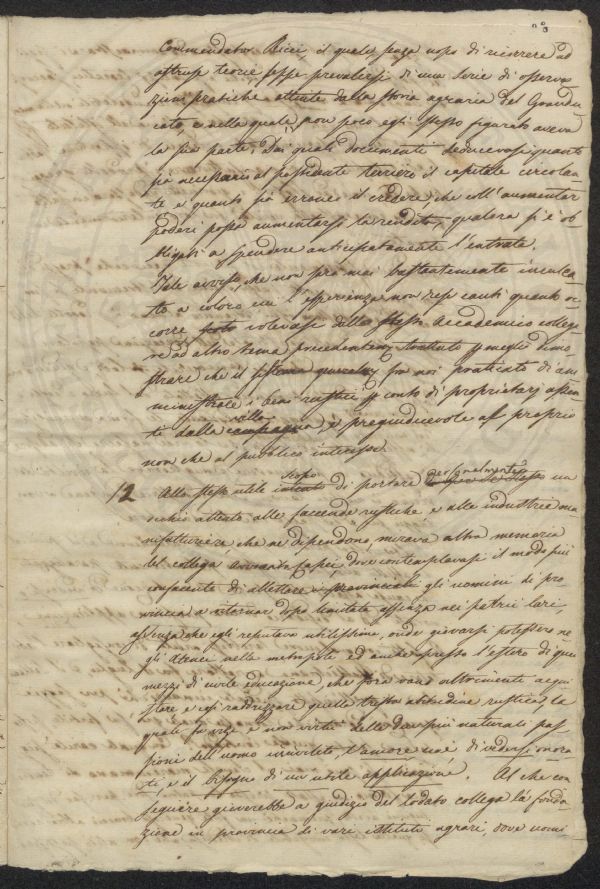 Commendator Ricci, il quale senza uopo di ricorrere ad
astruse teorie seppe prevalersi di una serie di osserva
zioni pratiche attinte dalla storia agraria del Grandu
cato, e nella quale non poco egli stesso figurato aveva
la sua parte. Dai quali documenti deducevasi quanto
sia necessario al possidente terriero il capitale circolan
te e quanto sia erroneo il credere, che coll'aumentar
poderi possa aumentarsi la rendita, qualora si è ob
bligati a spendere anticipatamente l'entrate.
Tale avviso che non sarà mai bastantemente inculca
to a coloro cui l'esperienza non rese cauti quanto oc
corre volevasi dallo stesso Accademico collega
re ad altro tema precedentemente trattato meglio dimo
strare che il sistema fra noi praticato di am
ministrare i beni rustici per conto di proprietarj assen
ti dalle ville è pregiudicevole al proprio
non che al pubblico interesse.
12 Allo stesso utile scopo di portare personalmente un
occhio attento alle faccende rustiche, e alle industrie ma
nifatturiere, che ne dipendono, mirava altra memoria
del collega Capei, dove contemplavasi il modo più
confacente di allettare gli uomini di pro
vincia a ritornar dopo limitata assenza nei patrii lari,
assenza che egli reputava utilissima, onde giovarsi potessero ne
gli Atenei nelle metropoli ed anche presso l'estero di quei
mezzi di civile educazione, che fora vano altrimenti acqui
stare e così raddrizzare quella trista abitudine rustica, la
quale fa vizi e non virtù delle due più naturali pas
sioni dell'uomo incivilito, l'amore cioè di vedersi onora
ti, e il bisogno di un utile applicazione. Al che con
seguire gioverebbe a giudizio del lodato collega la fonda
zione in provincia di varj istituti agrari, dove uomi